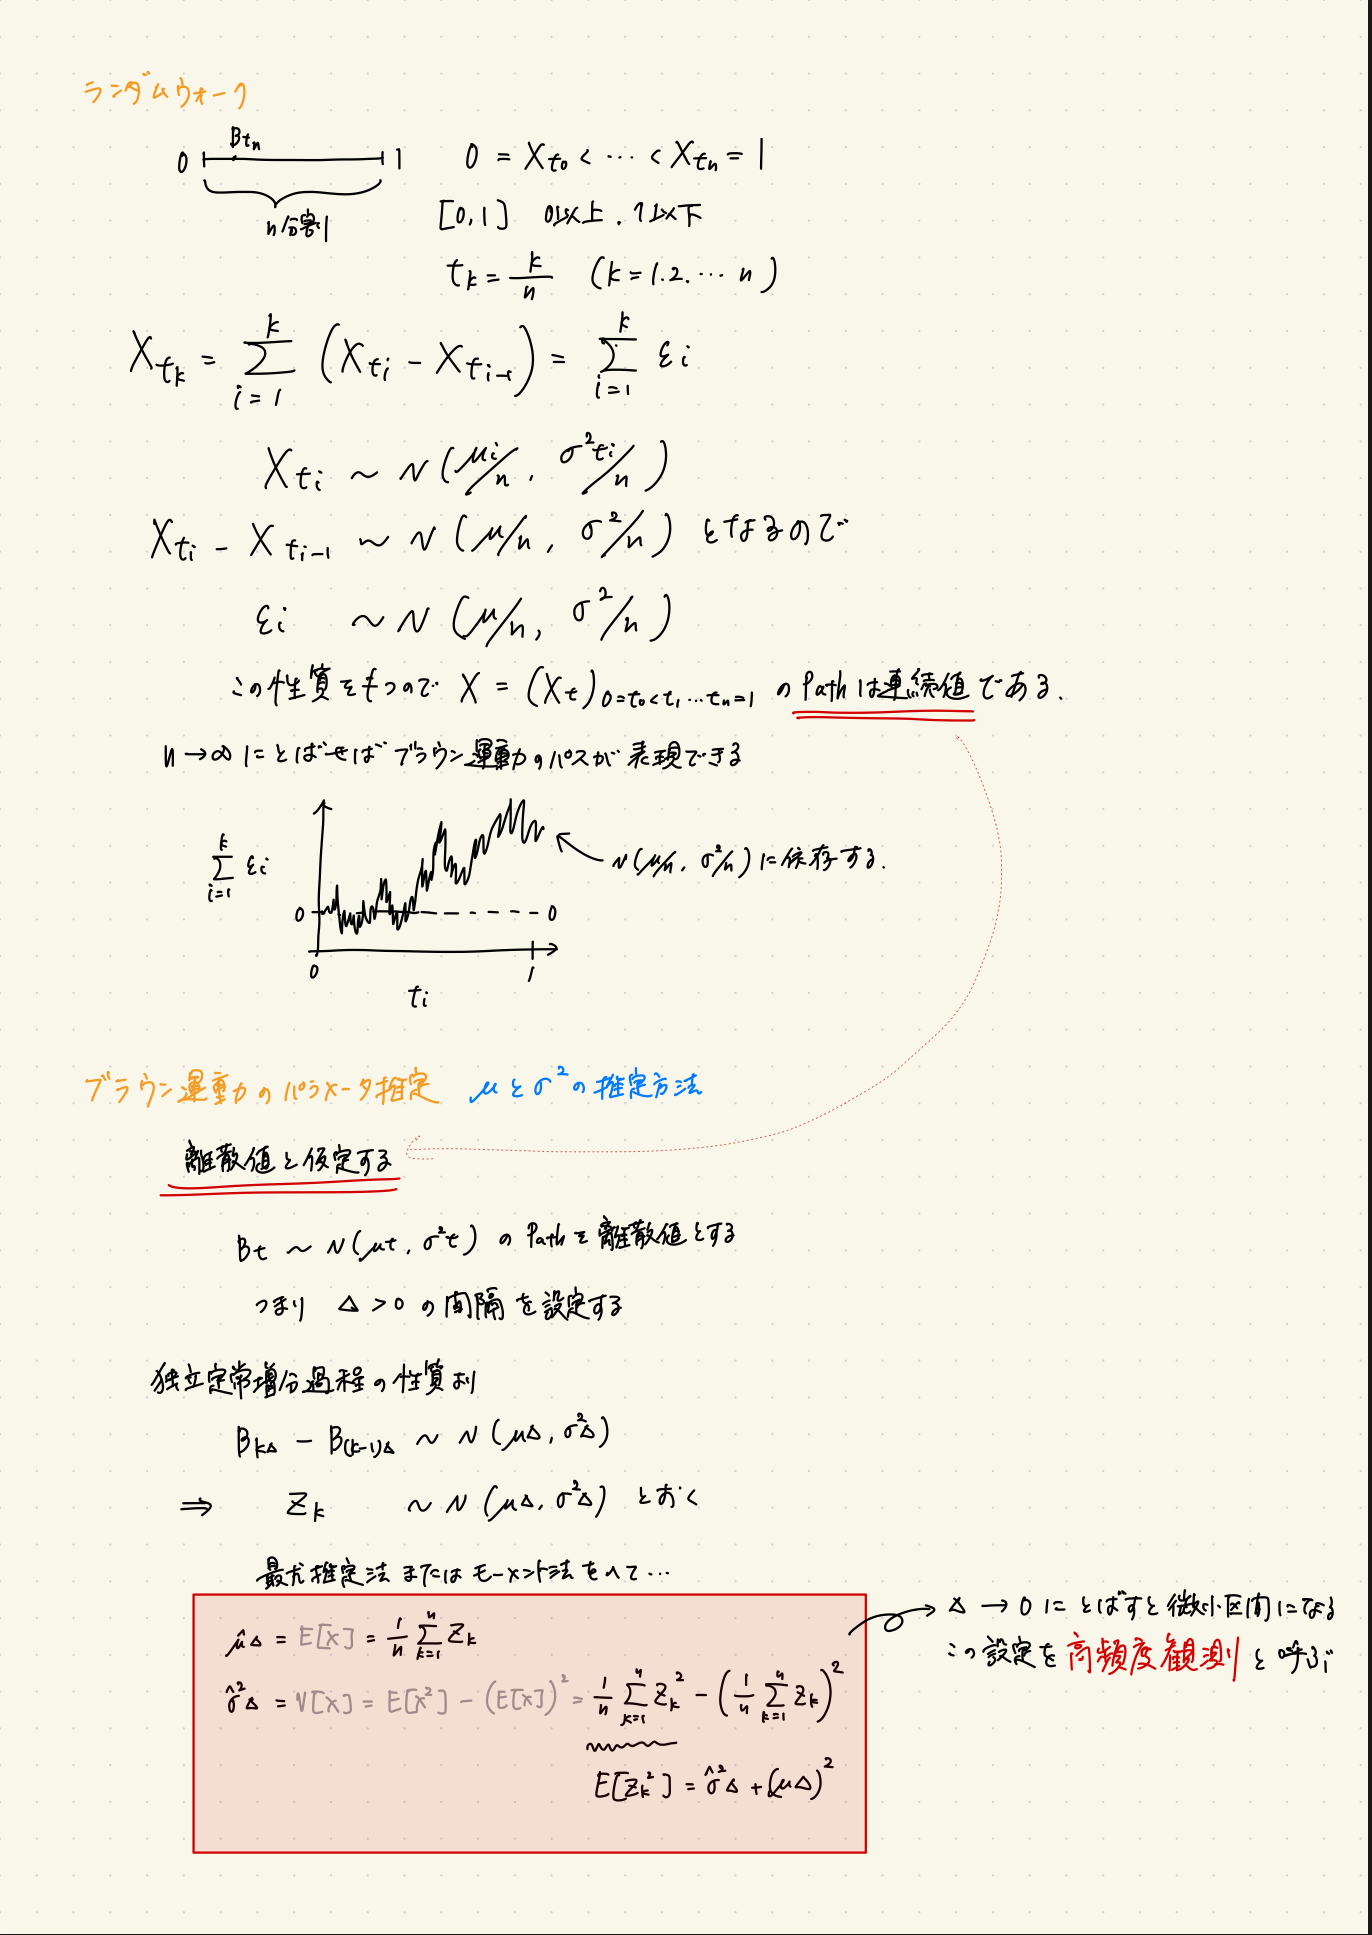 ランダムウォーク
0 Btn 1 0 = Xt₀ < … < Xtn = 1
n分割 [0,1] 0以上.1以下
tk = k/n (k=1.2.…n)
Xtk = Σ_{i=1}^{k} (Xti − Xti-1) = Σ_{i=1}^{k} εi
Xti ~ N(μi/n, σ²ti/n)
Xti − Xti−1 ~ N(μ/n, σ²/n) となるので
εi ~ N(μ/n, σ²/n)
この性質をもつので X = (Xt)0=t₀<t₁…tn=1 のPathは連続値である.
n→∞にとばせばブラウン運動のパスが表現できる
Σ_{i=1}^{k} εi
N(μ/n, σ²/n)に依存する.
0 0
0 1
ti
ブラウン運動のパラメータ推定 μとσ²の推定方法
離散値と仮定する
Bt ~ N(μt, σ²t) のPathを離散値とする
つまり Δ>0 の間隔を設定する
独立定常増分過程の性質より
BkΔ − B(k-1)Δ ~ N(μΔ, σ²Δ)
⇒ Zk ~ N(μΔ, σ²Δ) とおく
最尤推定法またはモーメント法をへて…
μ̂Δ = E[X] = 1/n Σ_{k=1}^{n} Zk
σ̂²Δ = V[X] = E[X²] − (E[X])² = 1/n Σ_{k=1}^{n} Zk² − (1/n Σ_{k=1}^{n} Zk)²
E[Zk²] = σ̂²Δ + (μΔ)²
Δ → 0 にとばすと微小区間になる
この設定を高頻度観測と呼ぶ